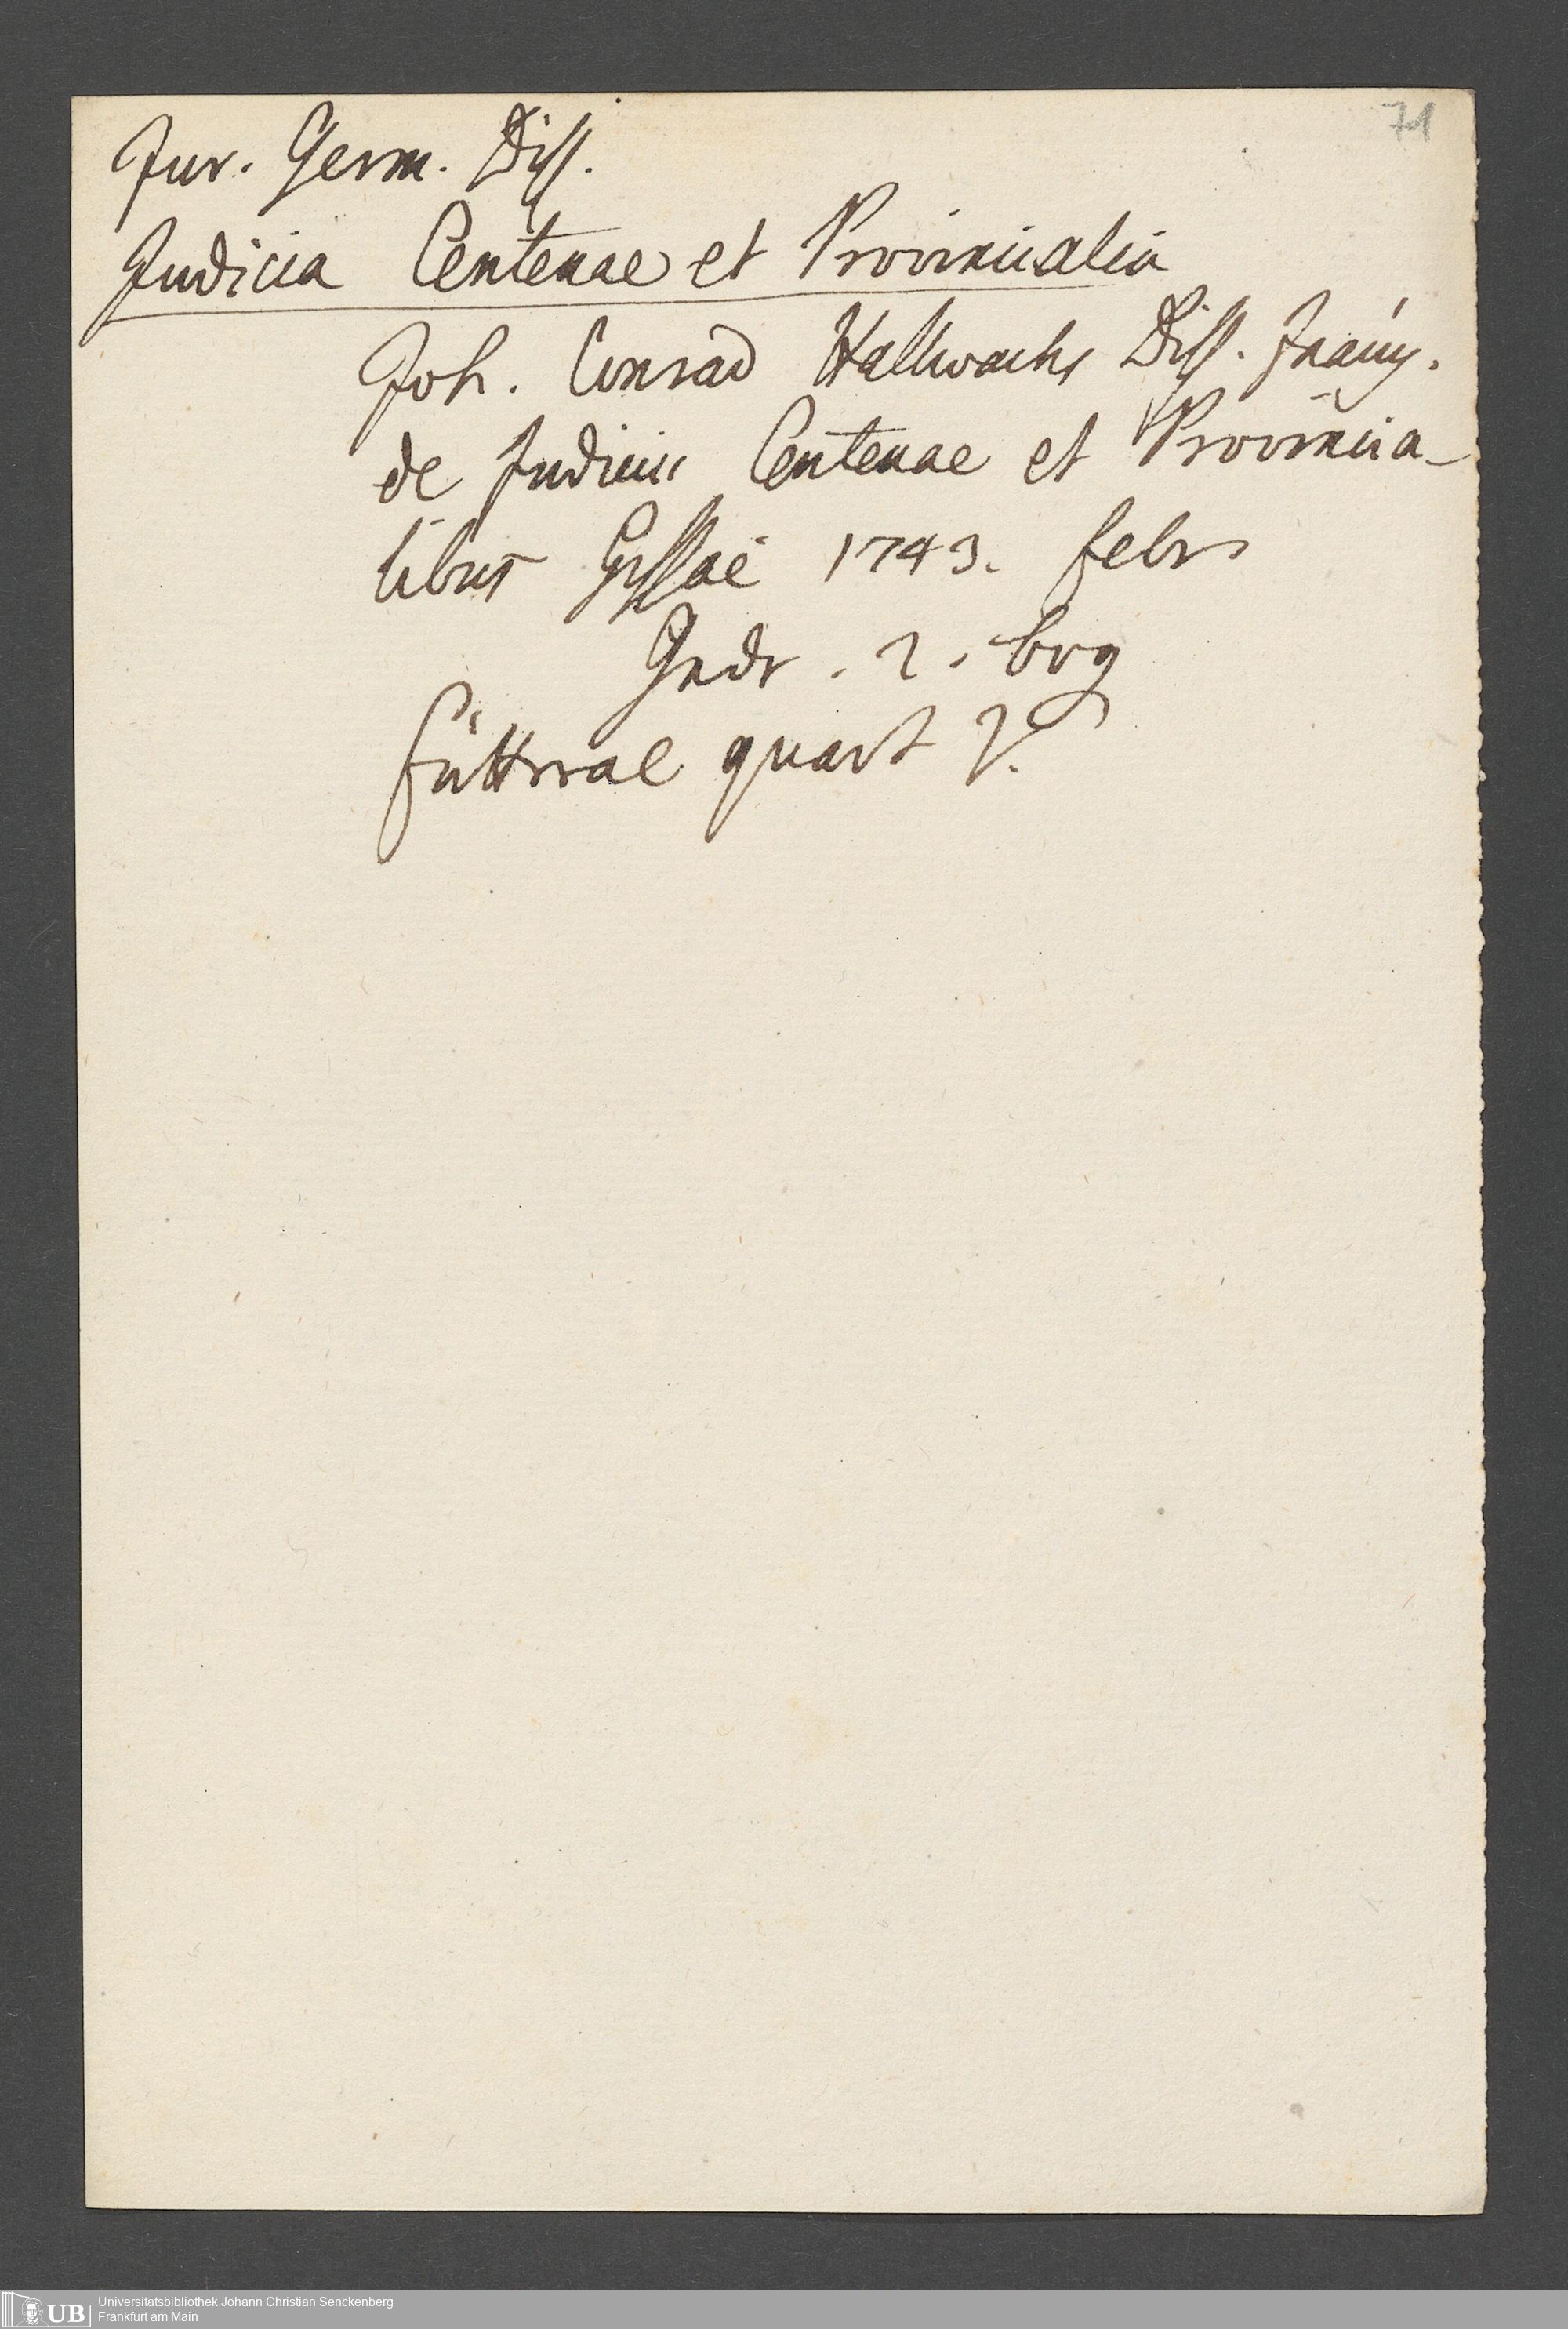 71
Jur. Germ. Diss.
Judicia Centenae et Provincialia
Joh. Conrad Hallwachs Diss. Inaug.
de Judiciis Centenae et Provincia-
libus Gissae 1743. febr
Jndr. 2. bog
futtral quart 2.
UB
Universitätsbibliothek Johann Christian Senckenberg
Frankfurt am Main